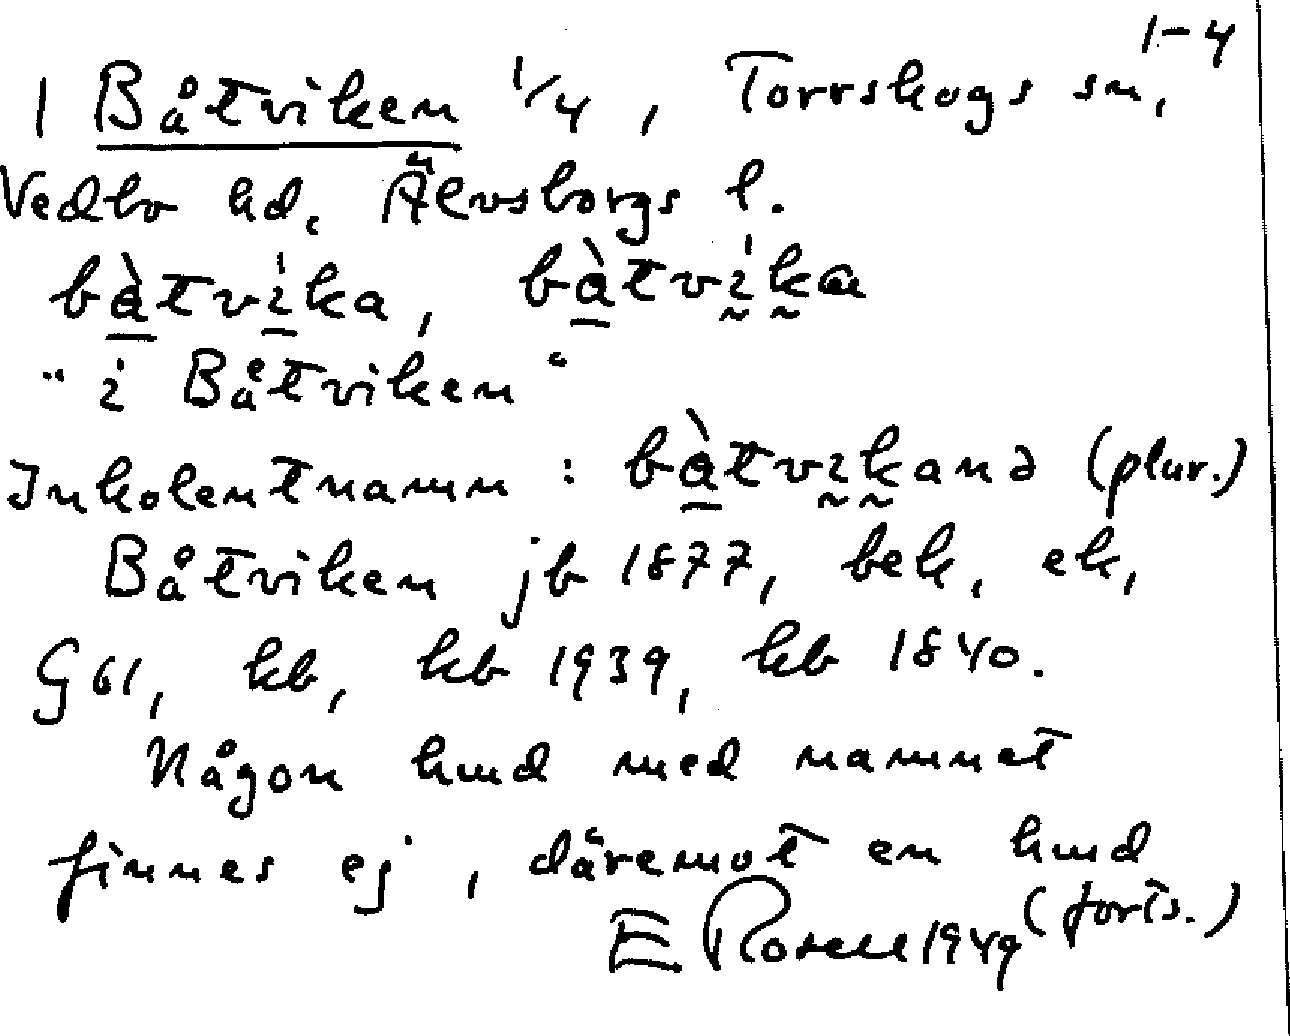 1-4
1 Båtviken 1/4, Torrskogs sn,
Vedbo hd, Älvsborgs l.
bàtvíka, bàtvíka
"i Båtviken"
Inkolentnamn : bàtvıkanə (plur.)
Båtviken jb 1877, bek, ek,
G 61, kb, kb 1939, kb 1840.
Någon hmd med namnet
finnes ej, däremot en hmd
(forts.)
E Rosell 1949